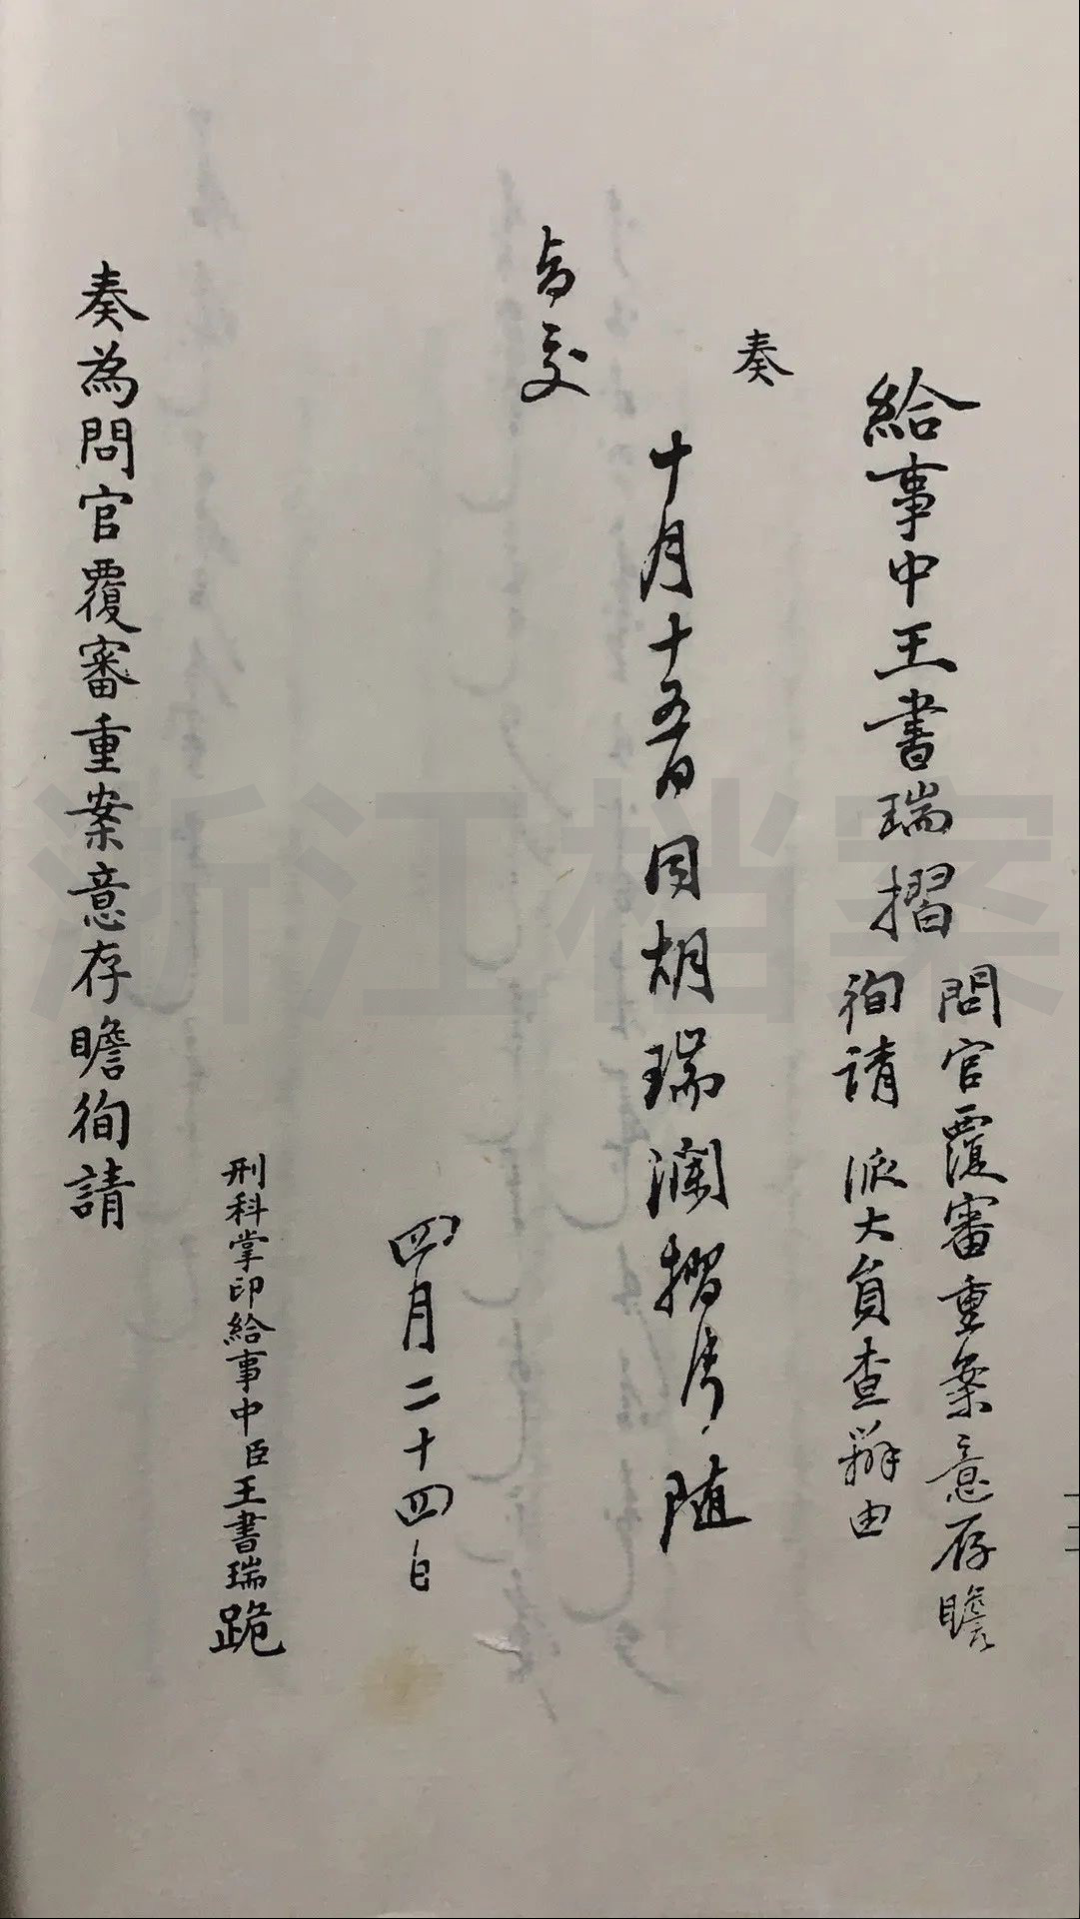 給事中王書瑞摺
問官覆審重案意存瞻
徇請 派大員查辦由
奏
十月十五日同胡瑞瀾摺片隨
旨交
四月二十四日
刑科掌印給事中臣王書瑞跪
奏為問官覆審重案意存瞻徇請
浙江档案